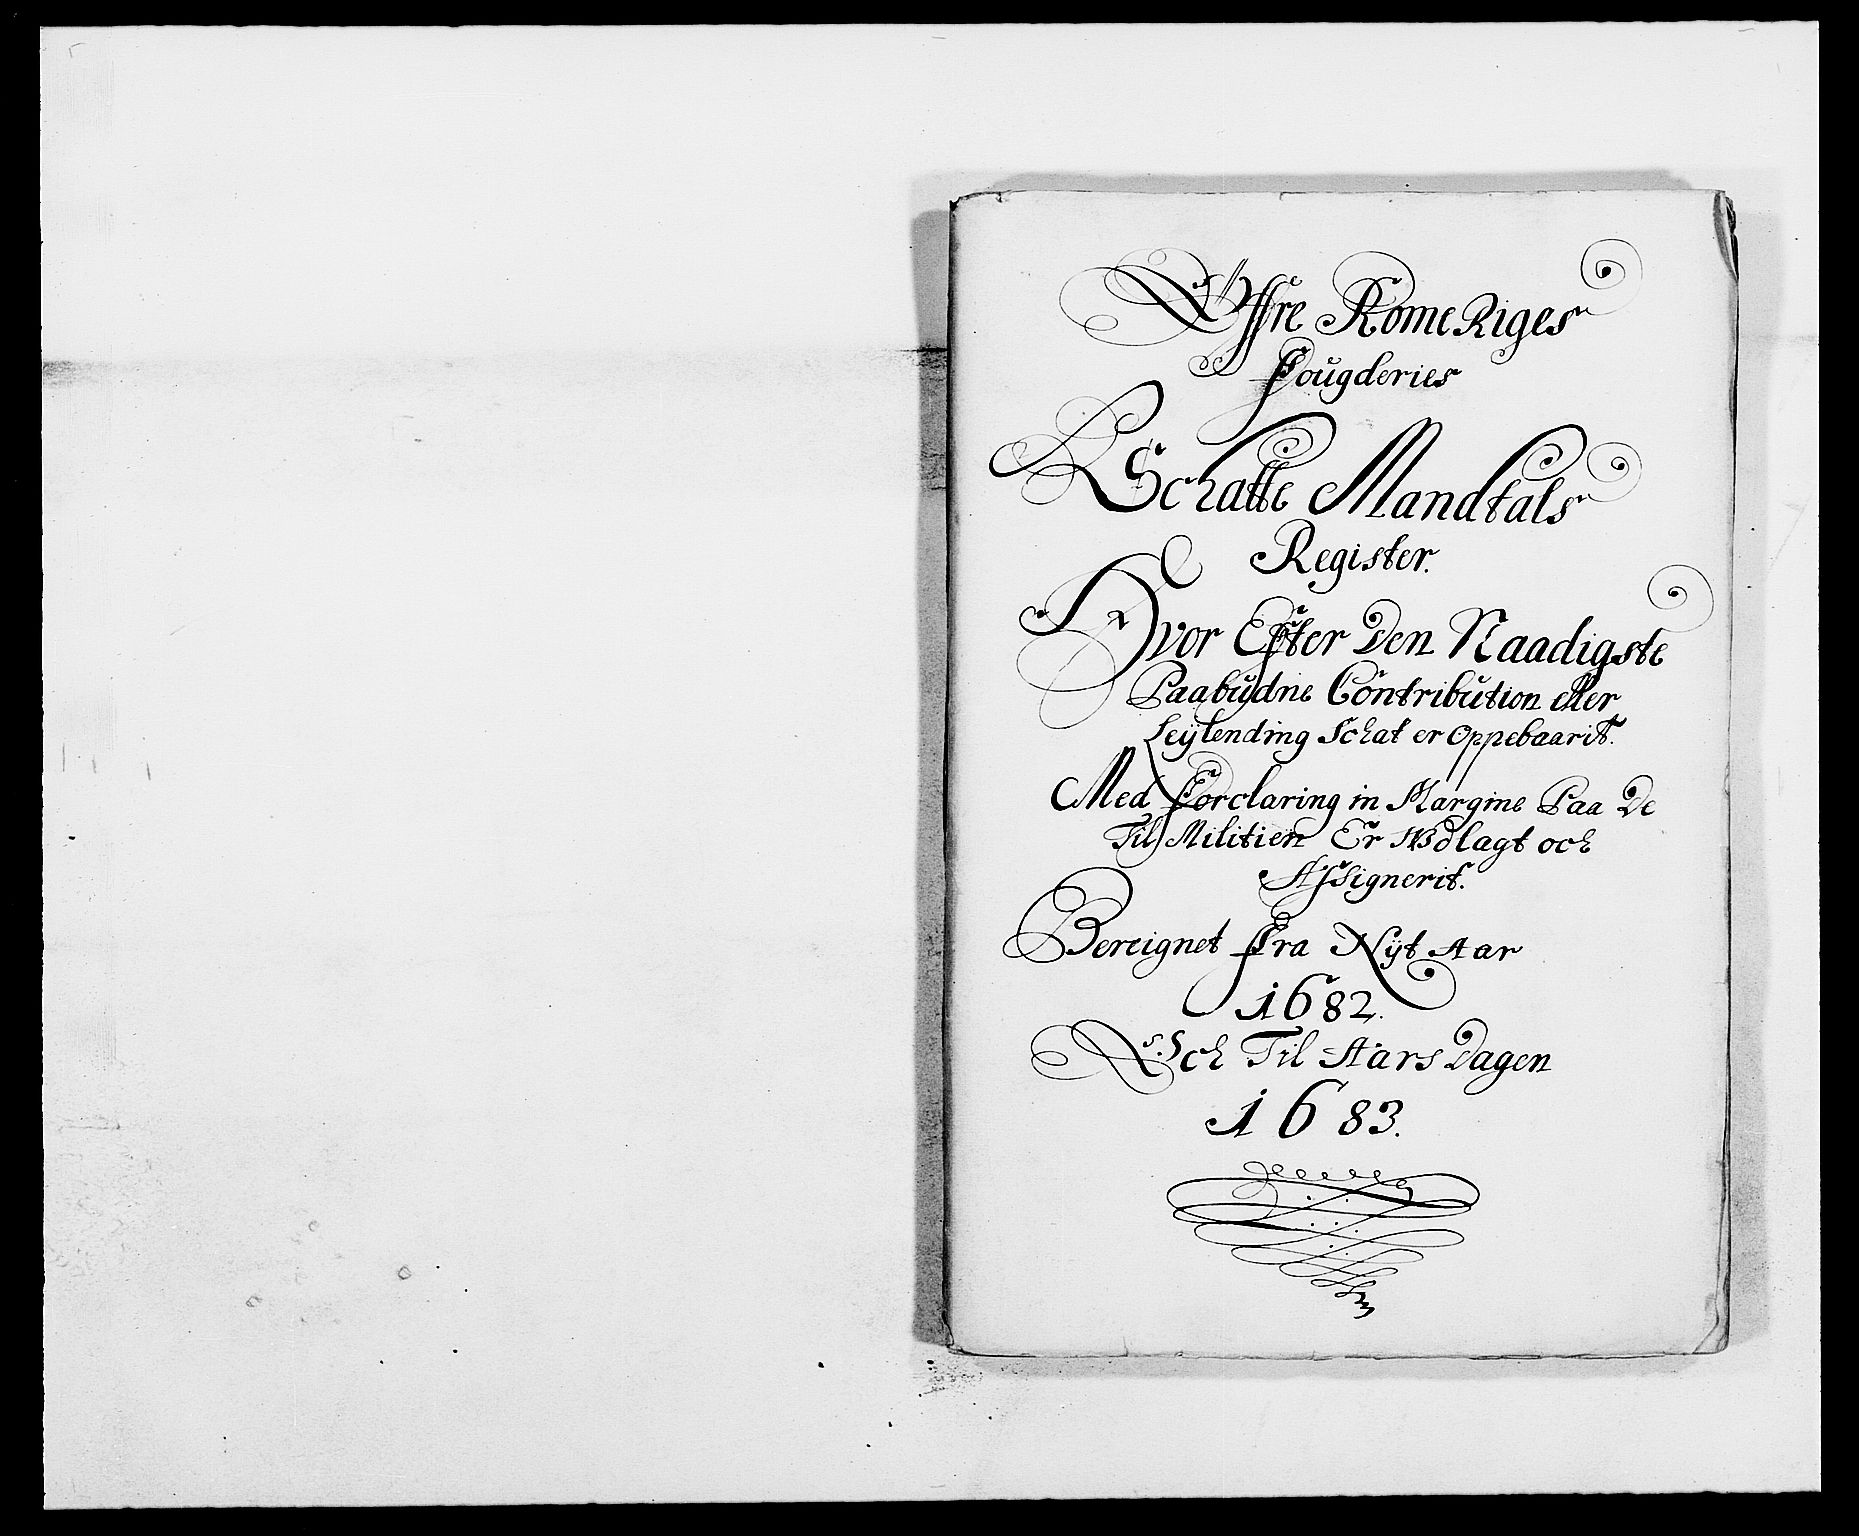 Øffre Rome Riges
Fougderies
Schatte Mandtals
Register.
Hvor Efter Den Naadigste
Paabudne Contribution eller
Leÿlending Schat er Oppebaarit.
Med Forclaring in Margine Paa De
Til Militien Er Wdlagt och
Assignerit.
Bereignet Fra Nÿt Aar
1682.
Och Til Aars Dagen
1683.